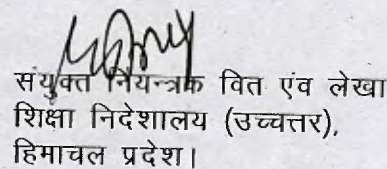 संयुक्त नियन्त्रक वित एंव लेखा
शिक्षा निदेशालय (उच्चत्तर),
हिमाचल प्रदेश।